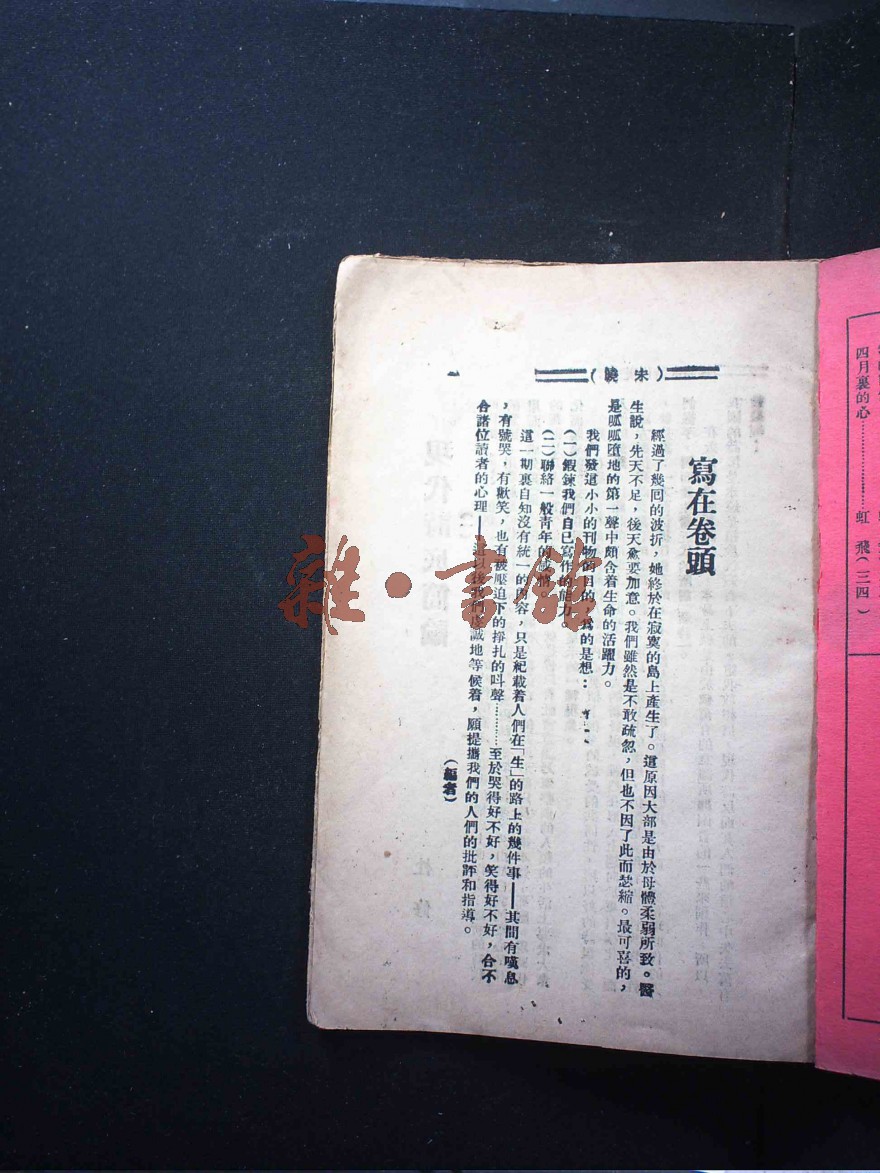 四月裏的心………………虹 飛(三四)
(曉 未)
寫在卷頭
經過了幾回的波折,她終於在寂寞的島上產生了。這原因大部是由於母體柔弱所致。醫
生說,先天不足,後天愈要加意。我們雖然是不敢疏忽,但也不因了此而瑟縮。最可喜的,
是呱呱墮地的第一聲中頗含着生命的活躍力。
我們發這小小的刊物的目的,為的是想:
(一)鍜鍊我們自己寫作的能力。
(二)聯絡一般青年的感情。
這一期裏自知沒有統一的內容,只是紀載着人們在「生」的路上的幾件事——其間有嘆息
,有號哭,有歡笑,也有被壓迫下的掙扎的叫聲………至於哭得好不好,笑得好不好,合不
合諸位讀者的心理——這以後我們虔誠地等候着,願提攜我們的人們的批評和指導。
(編者)
雜·書館